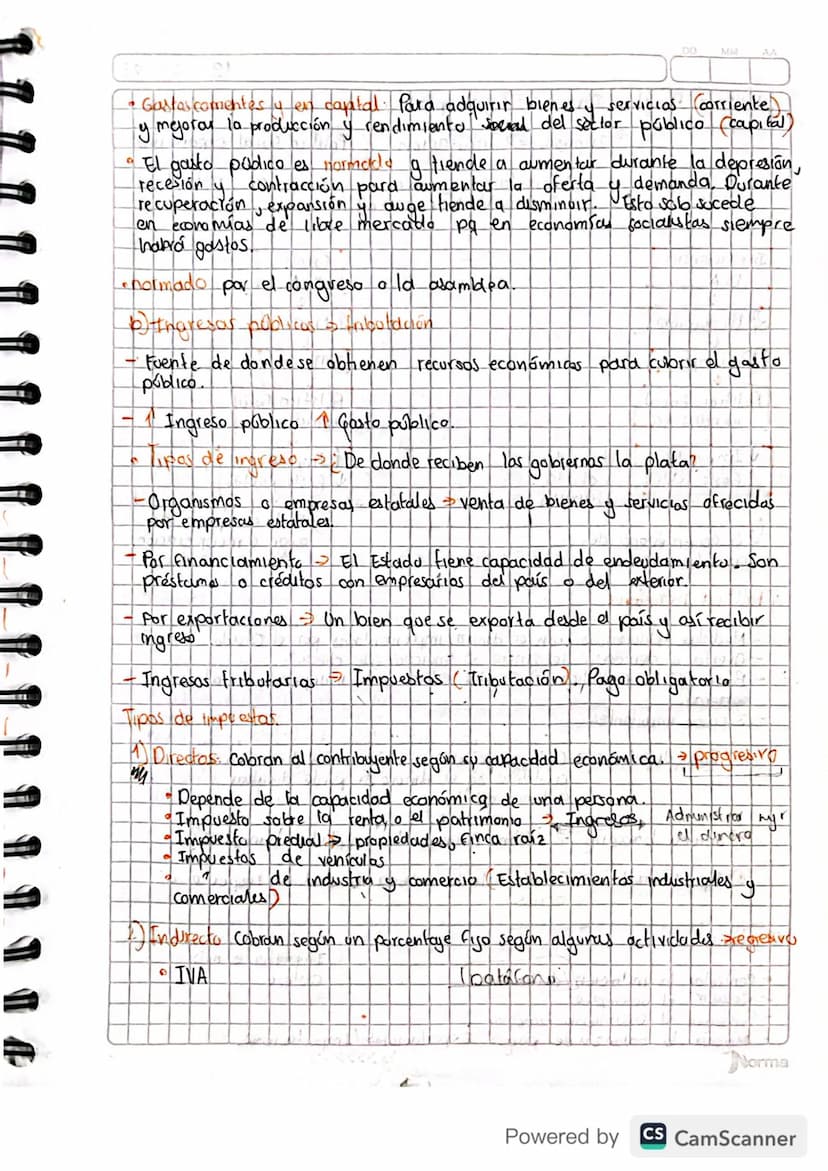 DD MM AA
• Gastos corrientes y en capital: Para adquirir bienes y servicios (corriente)
y mejorar la producción y rendimiento del sector público (capital)
• El gasto público es normado y tiende a aumentar durante la depresión,
recesión y contracción para aumentar la oferta y demanda. Durante
recuperación, expansión y auge tiende a disminuir. Esto sólo sucede
en economías de libre mercado pq en economías socialistas siempre
habrá gastos.
• normado por el congreso o la asamblea.
b) Ingresos públicos → tributación
- Fuente de donde se obtienen recursos económicos para cubrir el gasto
público.
- ↑ Ingreso público ↑ Gasto público.
• Tipos de ingreso → ¿De donde reciben los gobiernos la plata?
- Organismos o empresas estatales → venta de bienes y servicios ofrecidas
por empresas estatales.
- Por financiamiento → El Estado tiene capacidad de endeudamiento. Son
préstamo o créditos con empresarios del país o del exterior.
- Por exportaciones → Un bien que se exporta desde el país y así recibir
ingreso
- Ingresos tributarios → Impuestos (Tributación). Pago obligatorio
Tipos de impuestos.
1) Directos: Cobran al contribuyente según su capacidad económica. → progresivo
• Depende de la capacidad económica de una persona.
• Impuesto sobre la renta, o el patrimonio → Ingresos, Administrar myr
el dinero
• Impuesto predial → propiedades, finca raíz
• Impuestos de vehículos
• " de industria y comercio (Establecimientos industriales y
comerciales)
2) Indirecto Cobran según un porcentaje fijo según algunas actividades → regresivo
• IVA
Norma
Powered by CS CamScanner